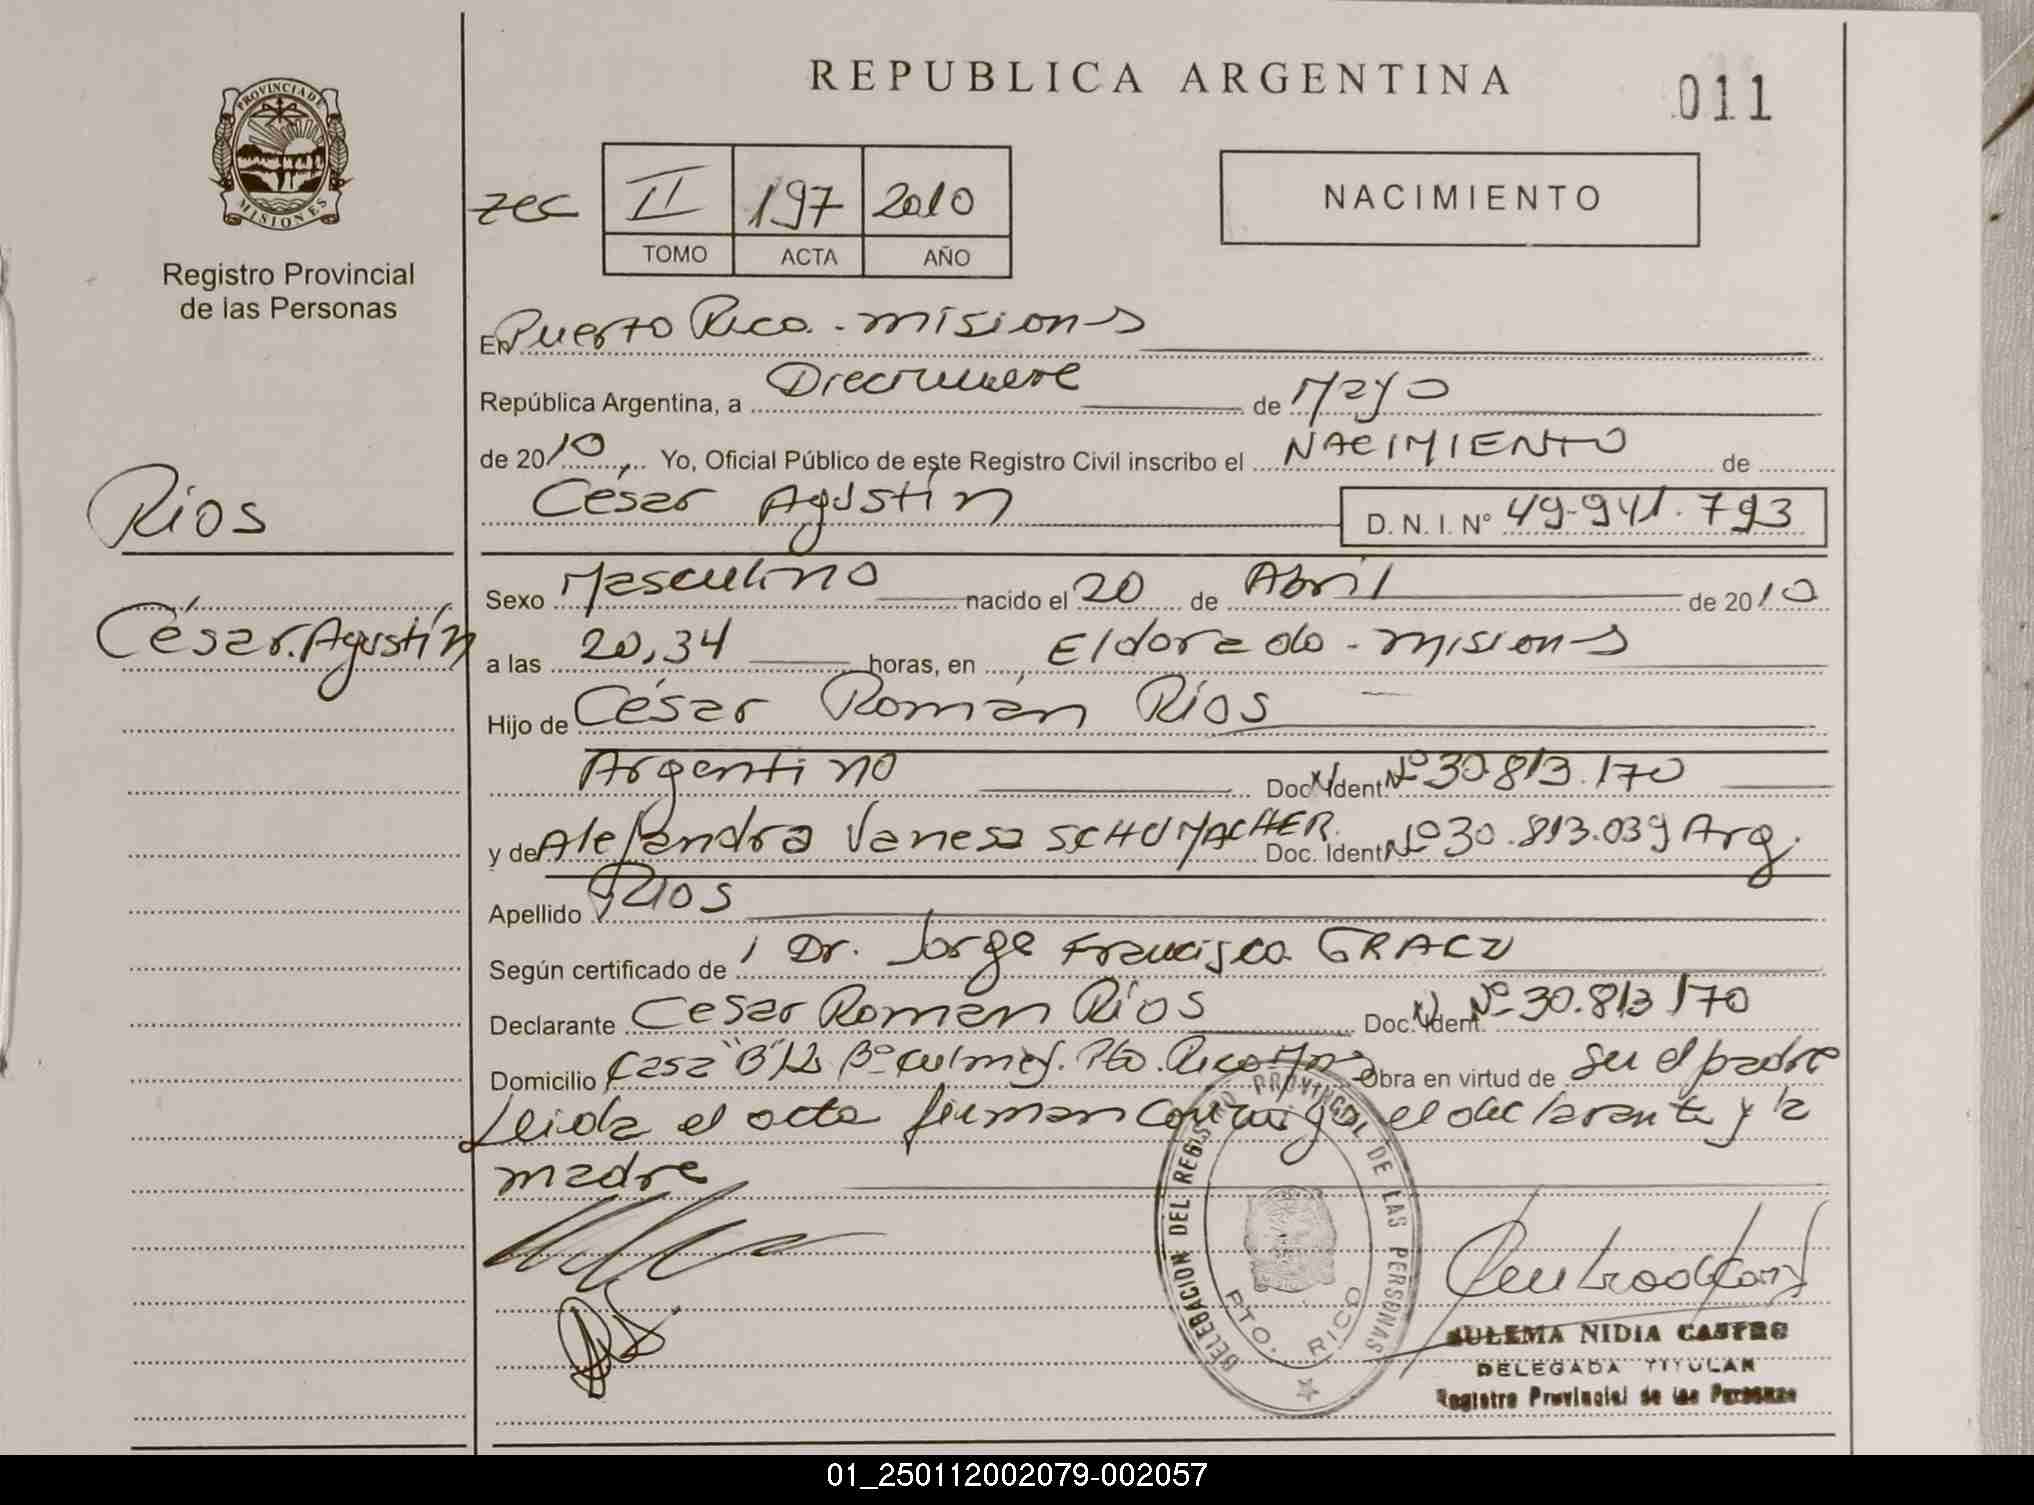 REPUBLICA ARGENTINA
011
PROVINCIA DE MISIONES
Registro Provincial
de las Personas
zec II 197 2010
TOMO ACTA AÑO
NACIMIENTO
En Puerto Rico - misiones
República Argentina, a Diecinueve de Mayo
de 2010, Yo, Oficial Público de este Registro Civil inscribo el NACIMIENTO de
Ríos
César Agustín D. N. I. Nº 49.941.793
César Agustín
Sexo Masculino nacido el 20 de Abril de 2010
a las 20,34 horas, en Eldorado - misiones
Hijo de César Román Ríos
Argentino Doc. Ident Nº 30.813.170
y de Alejandra Vanesa SCHUMACHER. Doc. Ident Nº 30.813.039 Arg.
Apellido Ríos
Según certificado de Dr. Jorge Francisco
Declarante Cesar Roman Ríos Doc. Ident. Nº 30.813.170
Domicilio Casa "B" Bº Pto. Rico Mnes Obra en virtud de ser el padre
Leida el acta firman conmigo el declarante y la
madre
DELEGACION DEL REGISTRO PROVINCIAL DE LAS PERSONAS
PTO. RICO
ZULEMA NIDIA CASTRO
DELEGADA TITULAR
Registro Provincial de las Personas
01_250112002079-002057